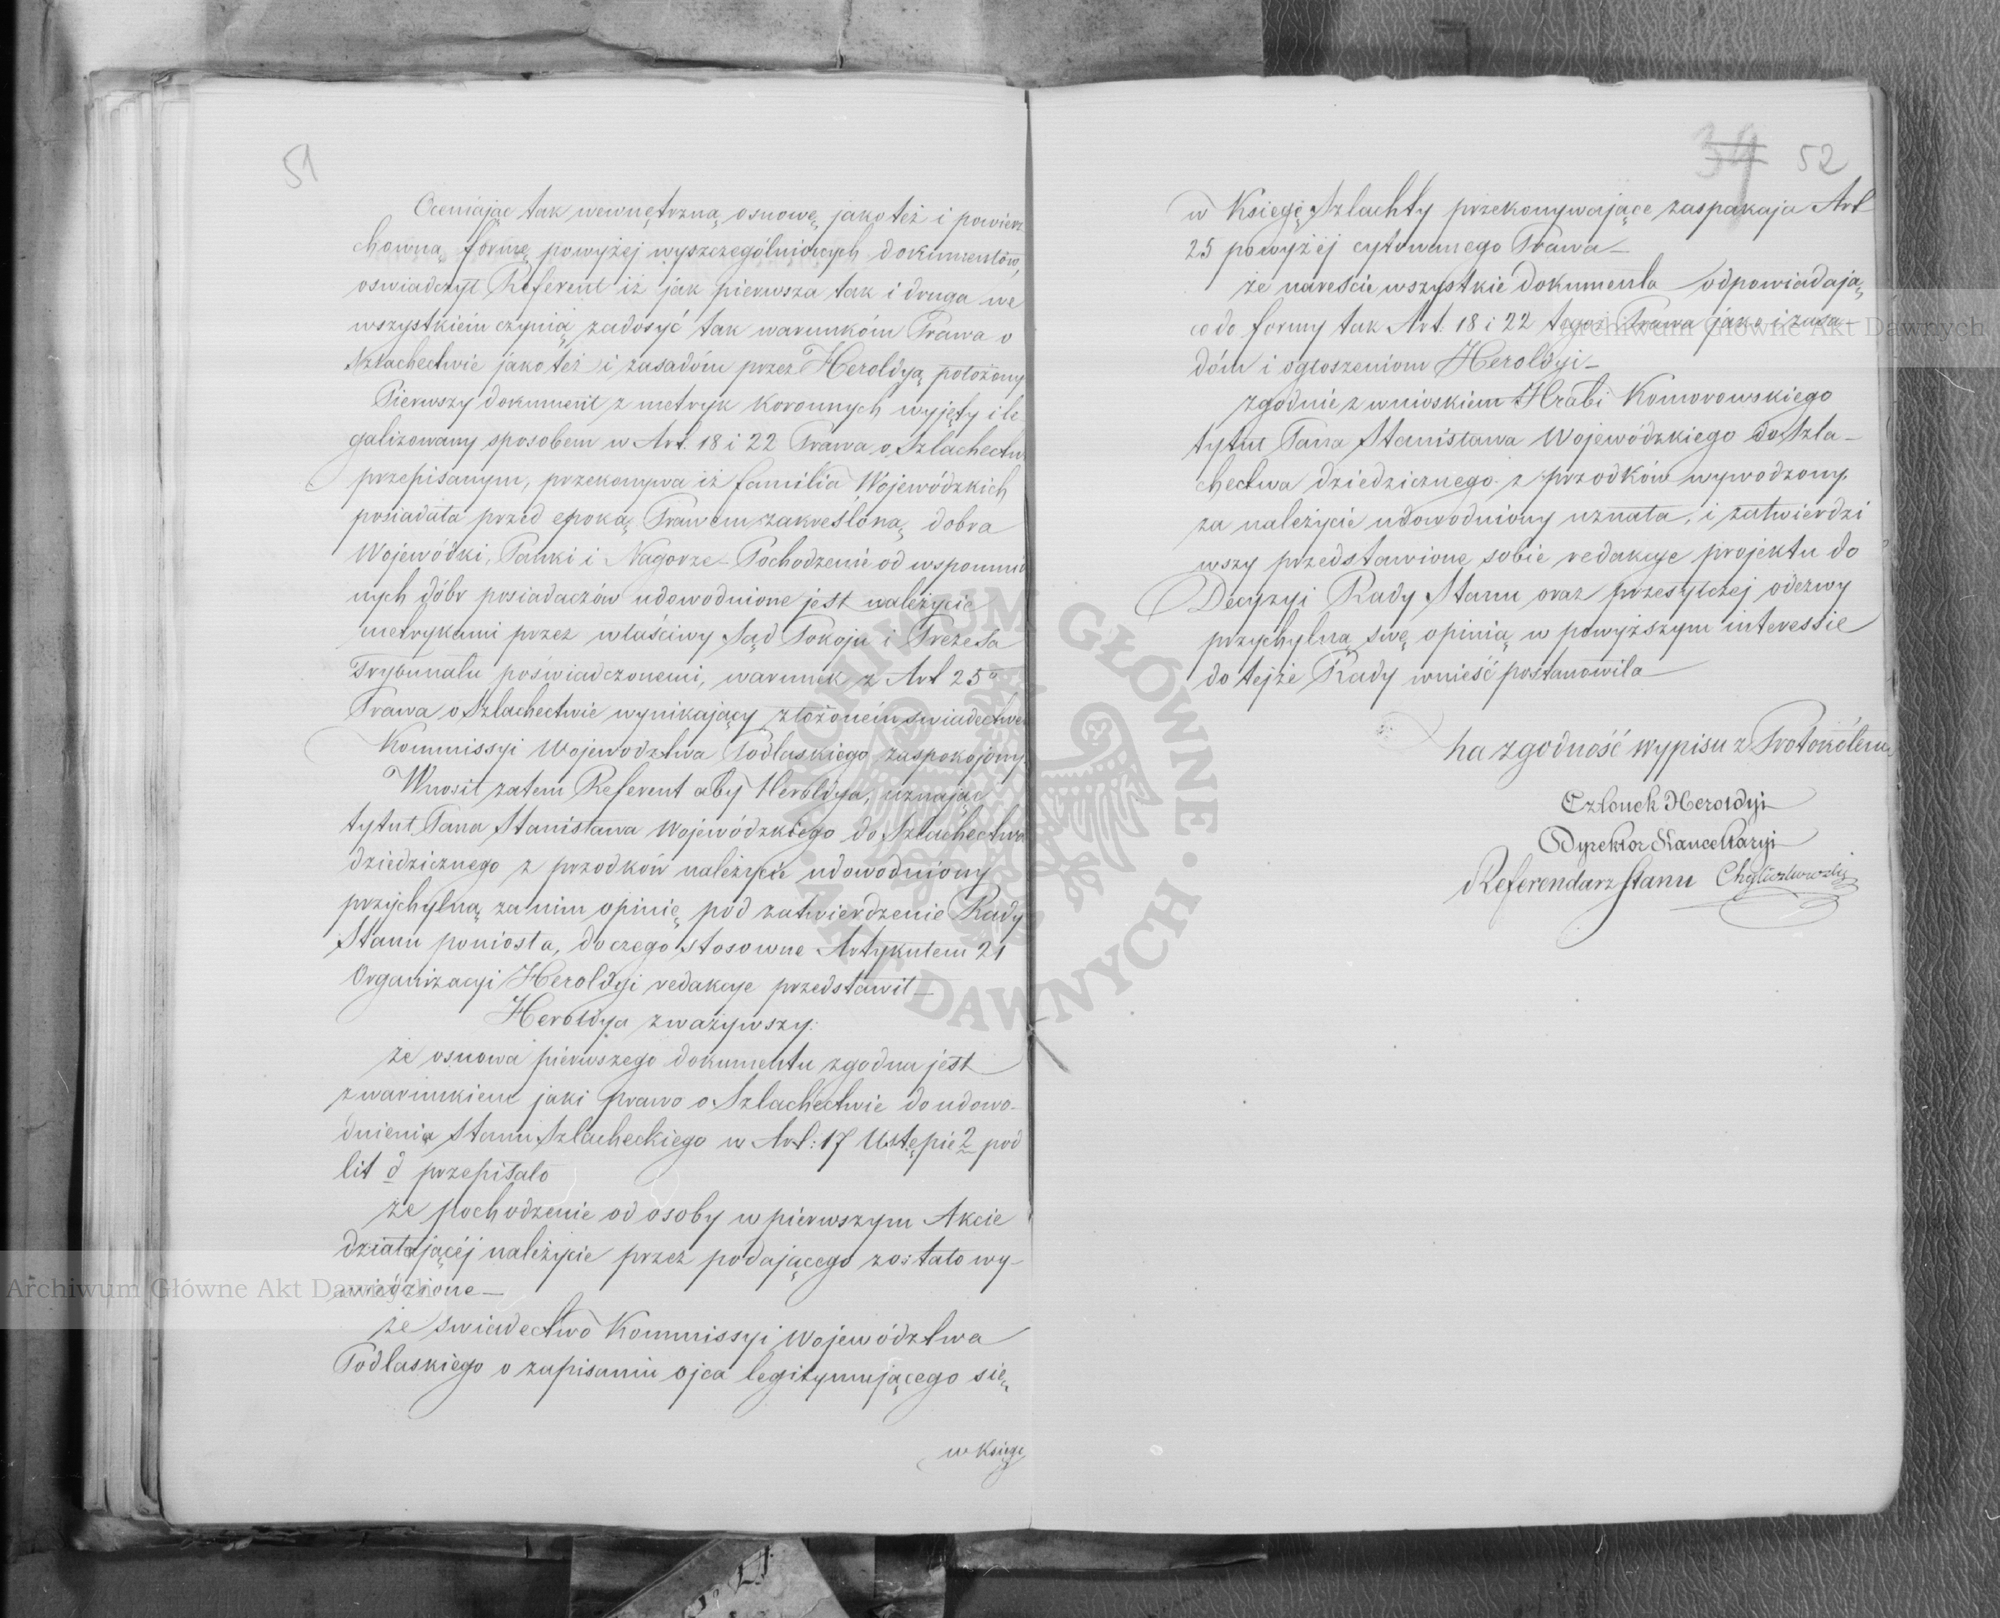 51
Oceniając tak wewnętrzną osnowę, jako też i powierz
chowną formę powyżej wyszczególnionych dokumentów,
oswiadczył Referent iż jak pierwsza tak i druga we
wszystkiém czynią zadosyć tak warunkóm Prawa o
Szlachectwie jako też i zasadóm przez Heroldyą położony
Pierwszy dokument z metryk koronnych wyjęty i le
galizowany sposobem w Art. 18 i 22 Prawa o Szlachectw
przepisanym, przekonywa iż familia Wojewódzkich
posiadała przed epoką Prawem zakreśloną dobra
Wojewódki, Panki i Nagorze – Pochodzenie od wspomnio
nych dóbr posiadaczów udowodnione jest należycie
metrykami przez właściwy Sąd Pokoju i Prezesa
Trybunału poświadczonemi, warunek z Art 25º
Prawa o Szlachectwie wynikający złożoném swiadectwem
Kommissyi Wojewodztwa Podlaskiego zaspokojony.
Wnosił zatem Referent aby Heroldya, uznając
tytuł Pana Stanisława Wojewódzkiego do Szlachectwa
dziedzicznego z przodków należycie udowodniony
przychylną za nim opinię pod zatwierdzenie Rady
Stanu poniosła, do czego stosowne Artykułem 21
Organizacyi Heroldyi redakcye przedstawił –
Heroldya zważywszy:
że osnowa pierwszego dokumentu zgodna jest
z warunkiem jaki prawo o Szlachectwie do udowo-
dnienia Stanu Szlacheckiego w Art: 17 Ustępie 2 pod
lit d przepisało
że pochodzenie od osoby w pierwszym Akcie
działającéj należycie przez podającego zostało wy-
wiedzione –
że swiadectwo Kommissyi Województwa
Podlaskiego o zapisaniu ojca legitymującego się
w Księgę
34 52
w Księgę Szlachty przekonywające zaspakaja Art
25 powyżéj cytowanego Prawa –
że nareście wszystkie dokumenta odpowiadają
co do formy tak Art: 18 i 22 tegoż Prawa jako i zasa-
dóm i ogłoszeniom Heroldyi –
zgodnie z wnioskiem Hrabi Komorowskiego
tytuł Pana Stanisława Wojewódzkiego do Szla-
chectwa dziedzicznego z przodków wywodzony
za należycie udowodniony uznała, i zatwierdzi
wszy przedstawionę sobie redakcye projektu do
Decyzyi Rady Stanu oraz przesyłczej odezwy
przychylną swę opinią w powyższym interessie
do tejże Rady wnieść postanowiła –
Na zgodność wypisu z Protokółem
Członek Heroldyi
Dyrektor Kancellaryi
Referendarz Stanu
Archiwum Główne Akt Dawnych
Archiwum Główne Akt Dawnych
ARCHIWUM GŁÓWNE · AKT DAWNYCH ·